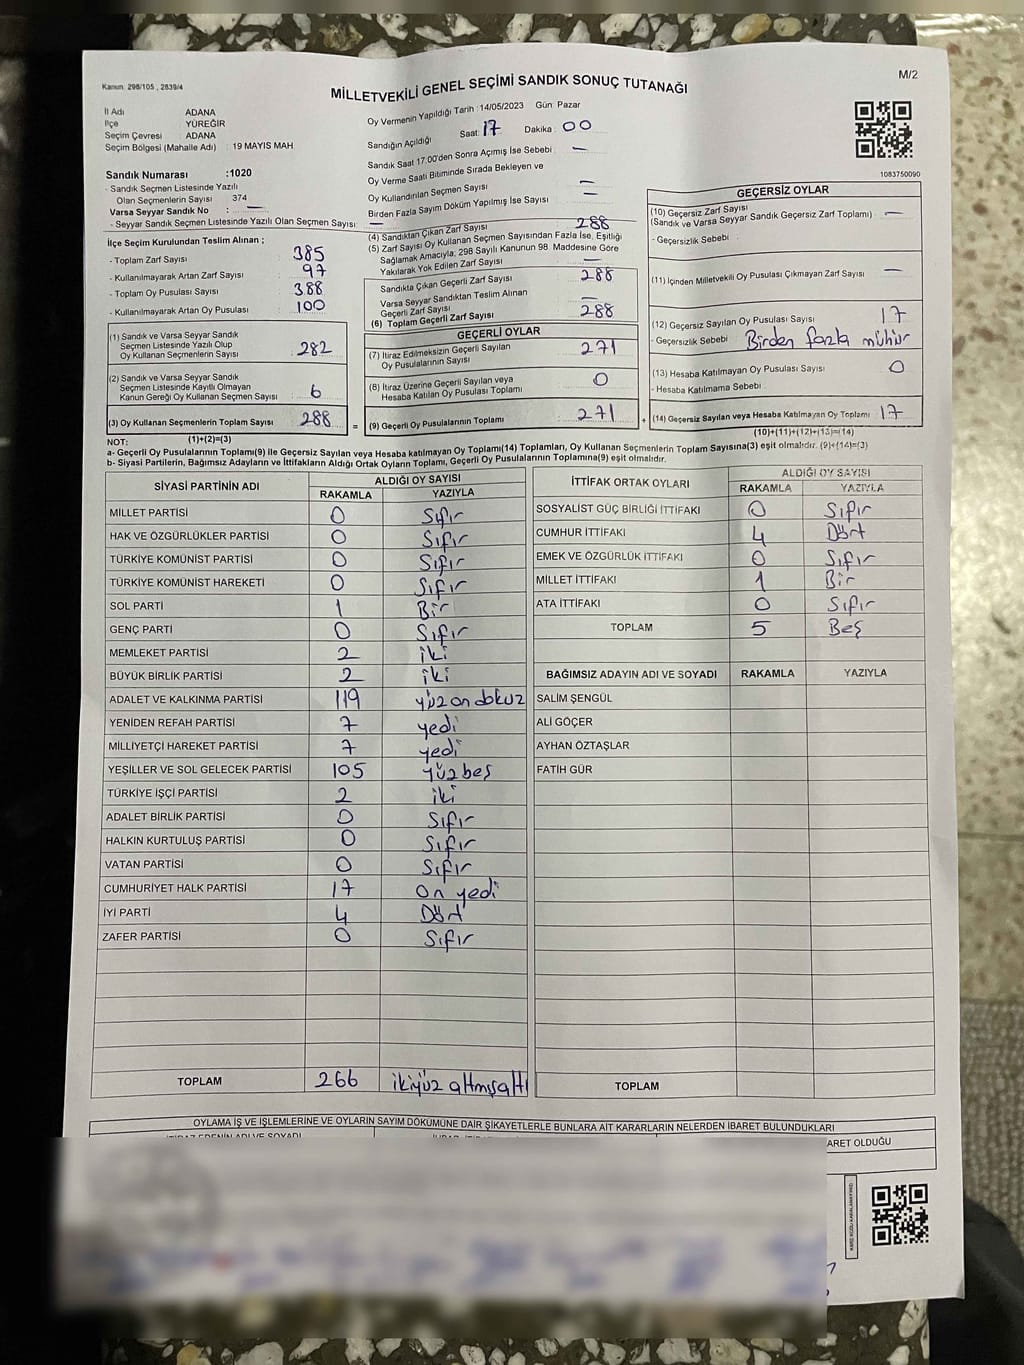 Kanun 298/105 , 2839/4
M/2
MİLLETVEKİLİ GENEL SEÇİMİ SANDIK SONUÇ TUTANAĞI
İl Adı ADANA
İlçe YÜREĞİR
Seçim Çevresi ADANA
Seçim Bölgesi (Mahalle Adı) : 19 MAYIS MAH
Sandık Numarası :1020
- Sandık Seçmen Listesinde Yazılı
Olan Seçmenlerin Sayısı : 374
Varsa Seyyar Sandık No : —
- Seyyar Sandık Seçmen Listesinde Yazılı Olan Seçmen Sayısı: —
Oy Vermenin Yapıldığı Tarih :14/05/2023 Gün: Pazar
Sandığın Açıldığı Saat: 17 Dakika : 00
Sandık Saat 17.00'den Sonra Açımış İse Sebebi : —
Oy Verme Saati Bitiminde Sırada Bekleyen ve
Oy Kullandırılan Seçmen Sayısı : —
Birden Fazla Sayım Döküm Yapılmış İse Sayısı : —
1083750090
İlçe Seçim Kurulundan Teslim Alınan ;
- Toplam Zarf Sayısı : 385
- Kullanılmayarak Artan Zarf Sayısı : 97
- Toplam Oy Pusulası Sayısı : 388
- Kullanılmayarak Artan Oy Pusulası : 100
(1) Sandık ve Varsa Seyyar Sandık
Seçmen Listesinde Yazılı Olup
Oy Kullanan Seçmenlerin Sayısı : 282
(2) Sandık ve Varsa Seyyar Sandık
Seçmen Listesinde Kayıtlı Olmayan
Kanun Gereği Oy Kullanan Seçmen Sayısı : 6
(3) Oy Kullanan Seçmenlerin Toplam Sayısı : 288
(1)+(2)=(3)
(4) Sandıktan Çıkan Zarf Sayısı : 288
(5) Zarf Sayısı Oy Kullanan Seçmen Sayısından Fazla İse, Eşitliği
Sağlamak Amacıyla; 298 Sayılı Kanunun 98. Maddesine Göre
Yakılarak Yok Edilen Zarf Sayısı : —
Sandıkta Çıkan Geçerli Zarf Sayısı : 288
Varsa Seyyar Sandıktan Teslim Alınan
Geçerli Zarf Sayısı : —
(6) Toplam Geçerli Zarf Sayısı : 288
GEÇERLİ OYLAR
(7) İtiraz Edilmeksizin Geçerli Sayılan
Oy Pusulalarının Sayısı : 271
(8) İtiraz Üzerine Geçerli Sayılan veya
Hesaba Katılan Oy Pusulası Toplamı : 0
= (9) Geçerli Oy Pusulalarının Toplamı : 271
GEÇERSİZ OYLAR
(10) Geçersiz Zarf Sayısı
(Sandık ve Varsa Seyyar Sandık Geçersiz Zarf Toplamı) : —
- Geçersizlik Sebebi :
(11) İçinden Milletvekili Oy Pusulası Çıkmayan Zarf Sayısı : —
(12) Geçersiz Sayılan Oy Pusulası Sayısı : 17
- Geçersizlik Sebebi : Birden fazla mühür
(13) Hesaba Katılmayan Oy Pusulası Sayısı : 0
- Hesaba Katılmama Sebebi :
+ (14) Geçersiz Sayılan veya Hesaba Katılmayan Oy Toplamı : 17
(10)+(11)+(12)+(13)=(14)
NOT:
a- Geçerli Oy Pusulalarının Toplamı(9) ile Geçersiz Sayılan veya Hesaba katılmayan Oy Toplamı(14) Toplamları, Oy Kullanan Seçmenlerin Toplam Sayısına(3) eşit olmalıdır. (9)+(14)=(3)
b- Siyasi Partilerin, Bağımsız Adayların ve İttifakların Aldığı Ortak Oyların Toplamı, Geçerli Oy Pusulalarının Toplamına(9) eşit olmalıdır.
SİYASİ PARTİNİN ADI ALDIĞI OY SAYISI
RAKAMLA YAZIYLA
MİLLET PARTİSİ 0 Sıfır
HAK VE ÖZGÜRLÜKLER PARTİSİ 0 Sıfır
TÜRKİYE KOMÜNİST PARTİSİ 0 Sıfır
TÜRKİYE KOMÜNİST HAREKETİ 0 Sıfır
SOL PARTİ 1 Bir
GENÇ PARTİ 0 Sıfır
MEMLEKET PARTİSİ 2 iki
BÜYÜK BİRLİK PARTİSİ 2 iki
ADALET VE KALKINMA PARTİSİ 119 yüz on dokuz
YENİDEN REFAH PARTİSİ 7 yedi
MİLLİYETÇİ HAREKET PARTİSİ 7 yedi
YEŞİLLER VE SOL GELECEK PARTİSİ 105 yüz beş
TÜRKİYE İŞÇİ PARTİSİ 2 iki
ADALET BİRLİK PARTİSİ 0 Sıfır
HALKIN KURTULUŞ PARTİSİ 0 Sıfır
VATAN PARTİSİ 0 Sıfır
CUMHURİYET HALK PARTİSİ 17 on yedi
İYİ PARTİ 4 Dört
ZAFER PARTİSİ 0 Sıfır
TOPLAM 266 ikiyüz altmışaltı
İTTİFAK ORTAK OYLARI ALDIĞI OY SAYISI
RAKAMLA YAZIYLA
SOSYALİST GÜÇ BİRLİĞİ İTTİFAKI 0 Sıfır
CUMHUR İTTİFAKI 4 Dört
EMEK VE ÖZGÜRLÜK İTTİFAKI 0 Sıfır
MİLLET İTTİFAKI 1 Bir
ATA İTTİFAKI 0 Sıfır
TOPLAM 5 Beş
BAĞIMSIZ ADAYIN ADI VE SOYADI RAKAMLA YAZIYLA
SALİM ŞENGÜL
ALİ GÖÇER
AYHAN ÖZTAŞLAR
FATİH GÜR
TOPLAM
OYLAMA İŞ VE İŞLEMLERİNE VE OYLARIN SAYIM DÖKÜMÜNE DAİR ŞİKAYETLERLE BUNLARA AİT KARARLARIN NELERDEN İBARET BULUNDUKLARI